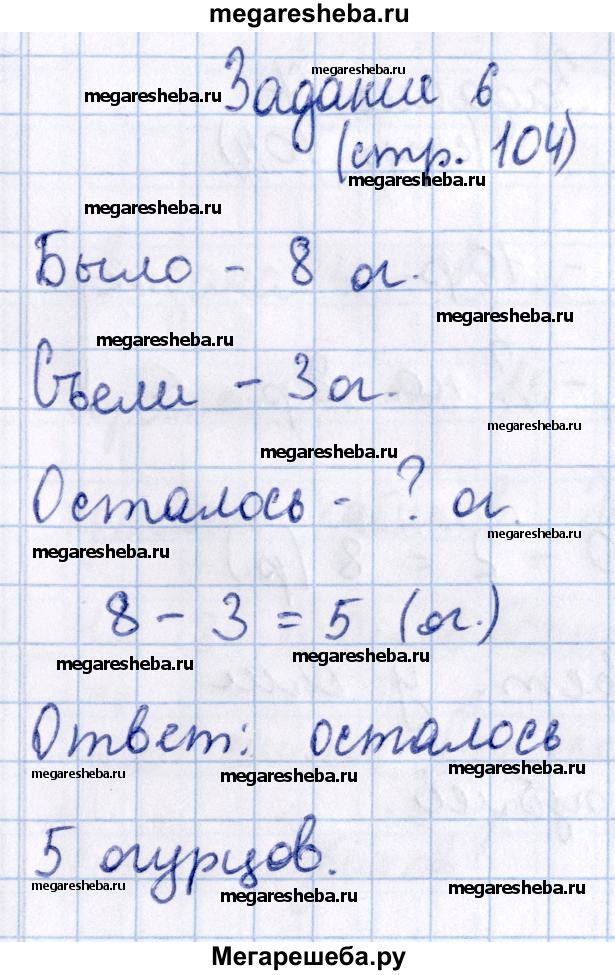 megaresheba.ru
megaresheba.ru
Задание 6
megaresheba.ru
(стр. 104)
megaresheba.ru
megaresheba.ru
Было - 8 о.
megaresheba.ru
megaresheba.ru
Съели - 3 о.
megaresheba.ru
megaresheba.ru
Осталось - ? о.
megaresheba.ru
megaresheba.ru
8 - 3 = 5 (о.)
megaresheba.ru
megaresheba.ru
Ответ: осталось
megaresheba.ru
megaresheba.ru
megaresheba.ru
5 огурцов.
megaresheba.ru
megaresheba.ru
megaresheba.ru
Мегарешеба.ру